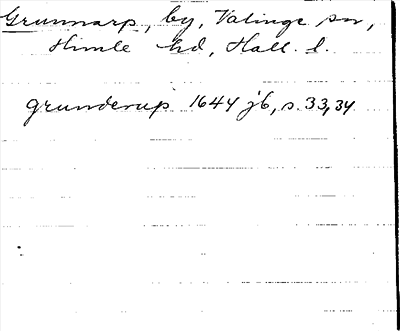 Grunnarp, by, Valinge sn,
Himle hd, Hall. l.
grunderup 1644 jb, s. 33, 34